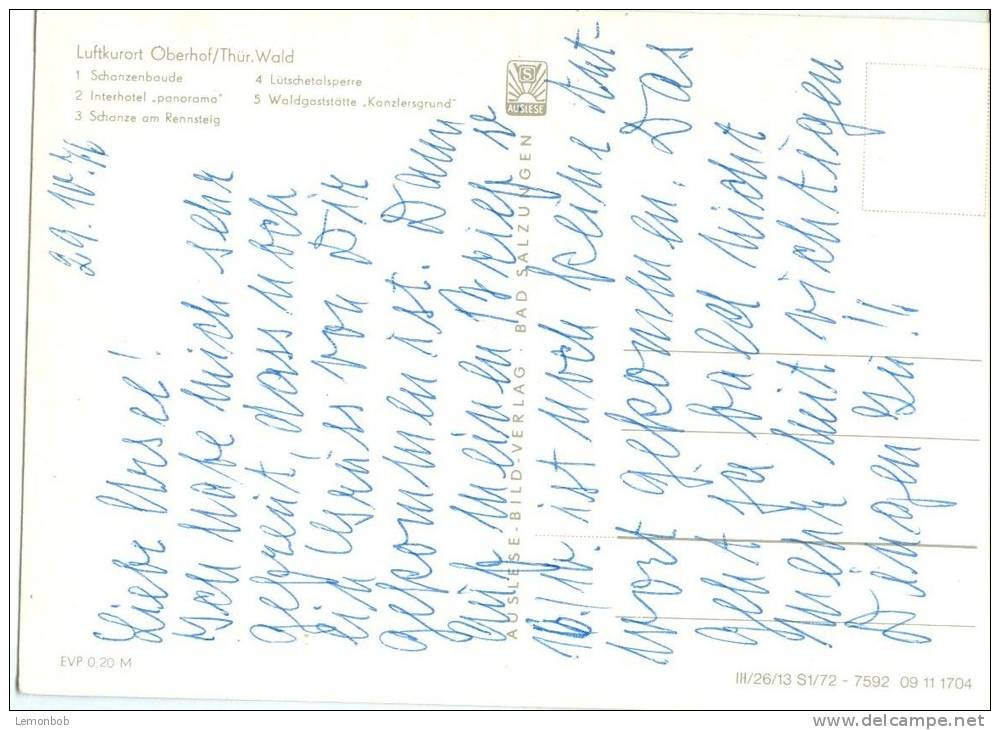 Luftkurort Oberhof/Thür. Wald
1 Schanzenbaude
2 Interhotel „panorama"
3 Schanze am Rennsteig
4 Lütschetalsperre
5 Waldgaststätte „Kanzlersgrund"
S
AUSLESE
AUSLESE-BILD-VERLAG · BAD SALZUNGEN
29. IV.
Liebe Ursel!
Ich habe mich sehr
gefreut, dass noch
ein Gruss von Dir
gekommen ist. Dann
auf meinen Brief v.
ist noch keine Ant-
wort gekommen. Das
geht ja bald nicht
mehr mit richtigen
Dingen zu!!
EVP 0,20 M
III/26/13 S1/72 - 7592 09 11 1704
Lemonbob
www.delcampe.net